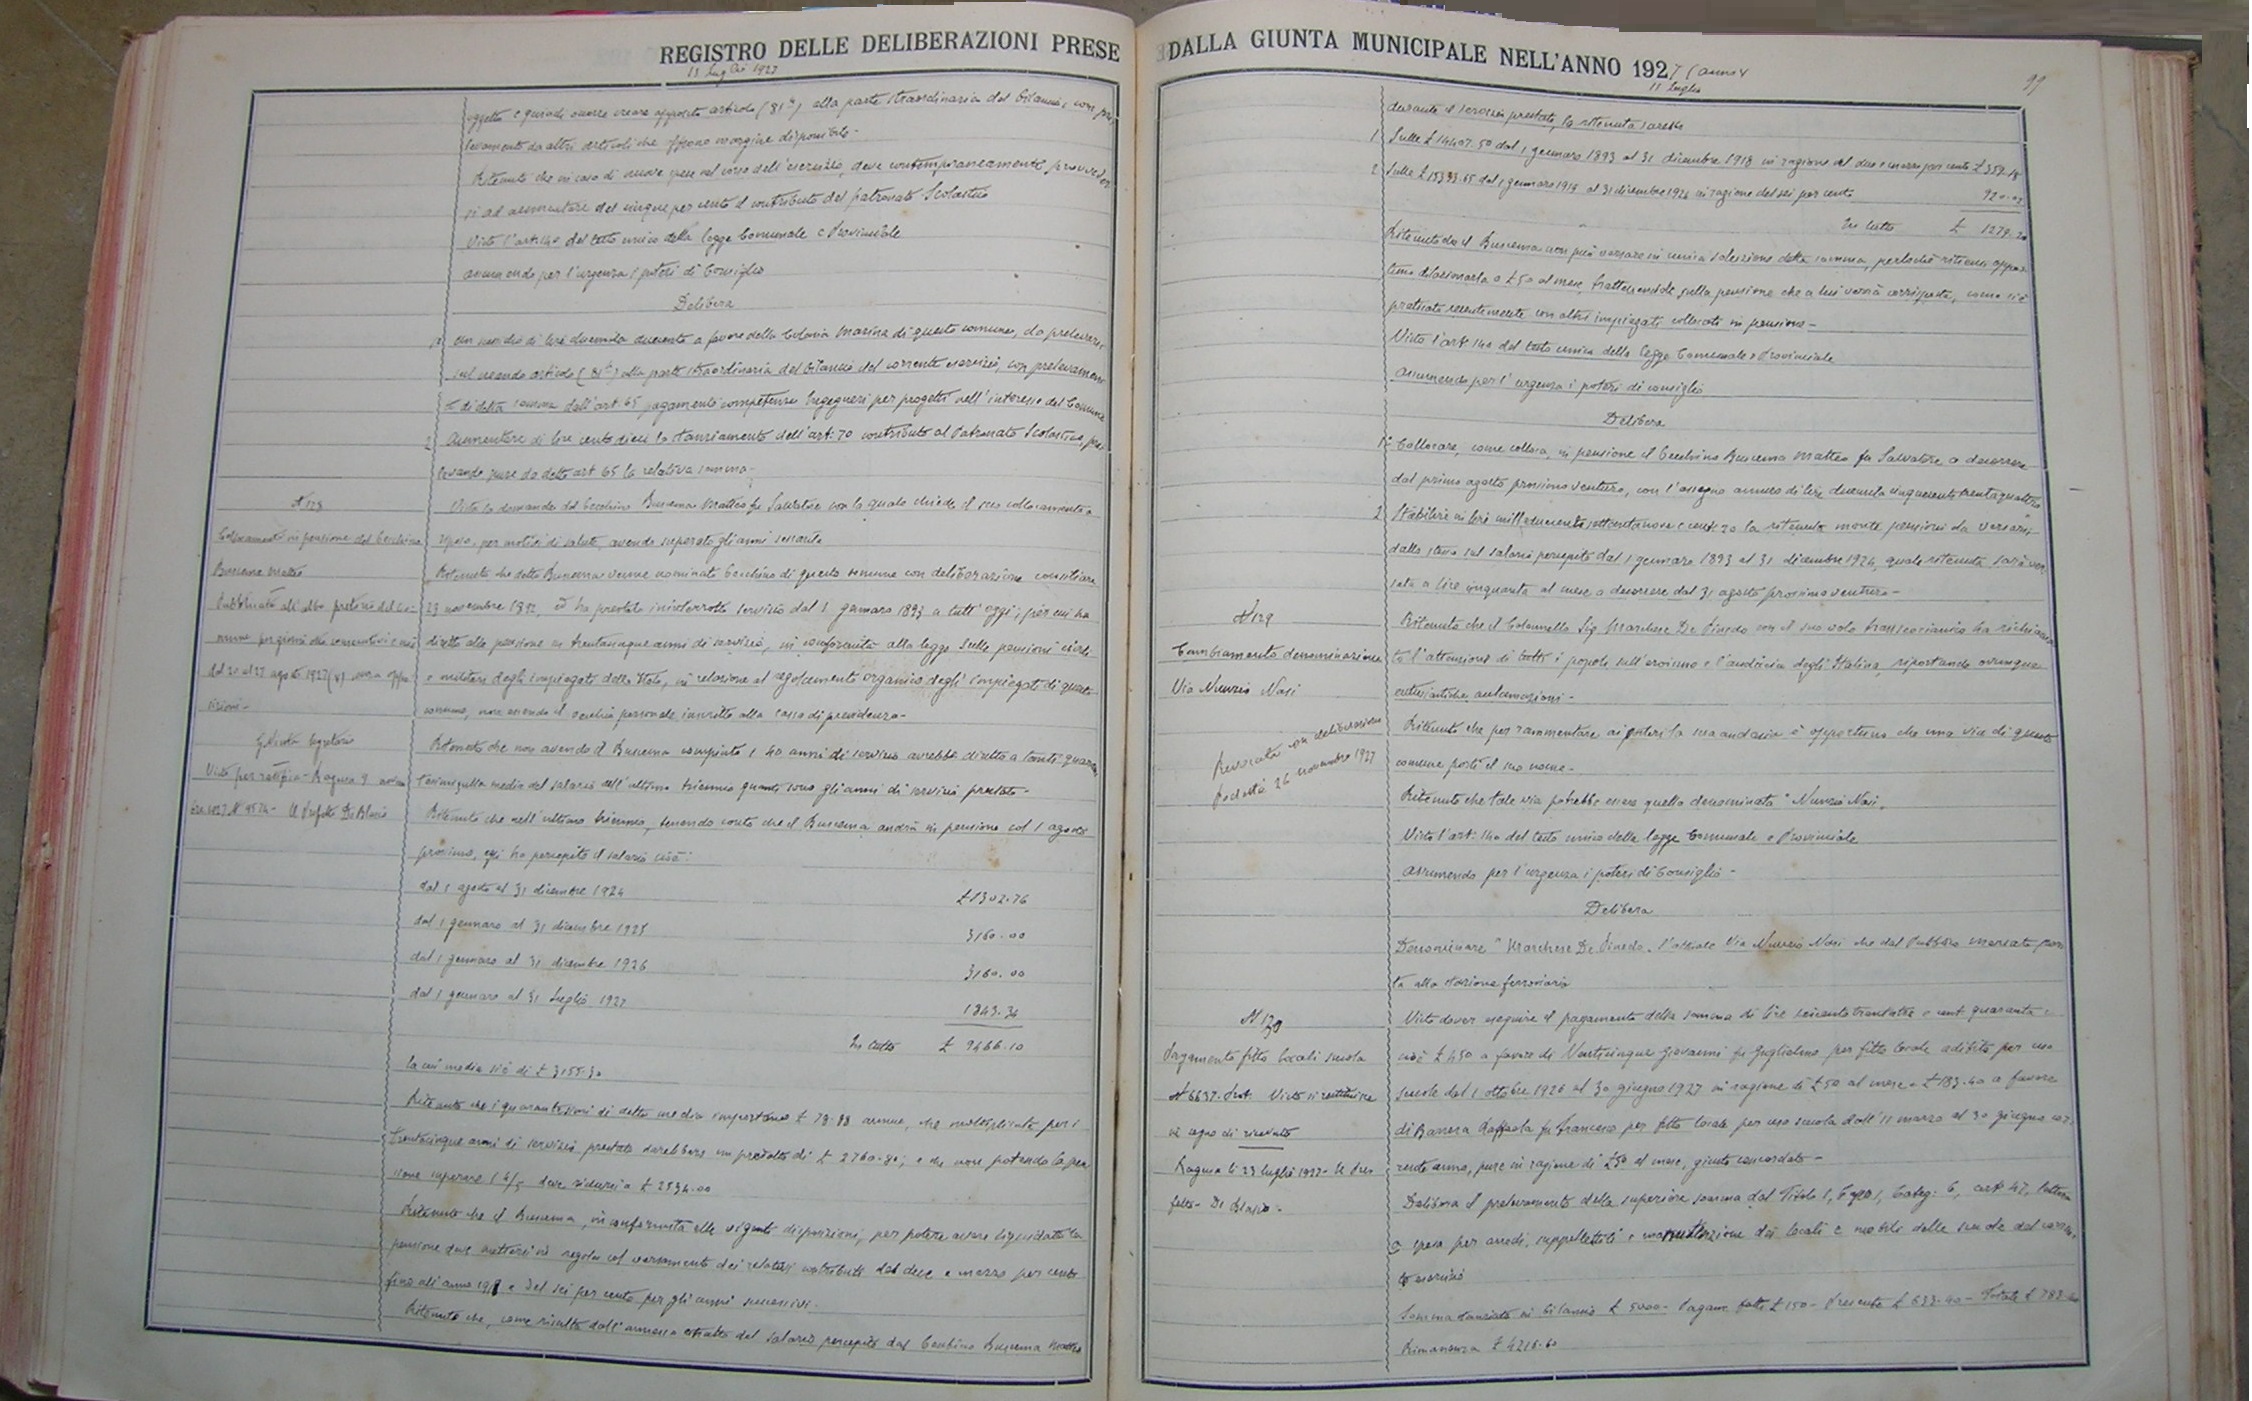 REGISTRO DELLE DELIBERAZIONI PRESE
11 Luglio 1927
oggetto e quindi occorre creare apposito articolo (81 bis) alla parte straordinaria del bilancio, con pre-
levamento da altri articoli che offrono margine disponibile-
Ritenuto che in caso di nuove spese nel corso dell'esercizio, deve contemporaneamente provveder
si ad aumentare del cinque per cento il contributo del patronato Scolastico
Visto l'art. 140 del testo unico della legge Comunale e Provinciale
assumendo per l'urgenza i poteri di Consiglio
Delibera
1 Un sussidio di lire duemila duecento a favore della Colonia Marina di questo comune, da prelevarsi
sul creando articolo (81 bis) alla parte straordinaria del bilancio del corrente esercizio, con prelevamen
to di detta somma dall'art. 65 pagamento competenze Ingegneri per progetti nell'interesse del Comune
2 Aumentare di lire cento dieci lo stanziamento dell'art. 70 contributo al Patronato Scolastico, pre-
levando pure da detto art 65 la relativa somma-
N 128
Collocamento in pensione del becchino
Buscema Matteo
Pubblicato all'albo pretorio del Co-
mune per giorni otto consecutivi e cioè
dal 20 al 27 agosto 1927 (V) senza oppo-
sizioni-
Il Segretario
Visto per
Il Prefetto Di Blasio
Vista la domanda del becchino Buscema Matteo fu Salvatore con la quale chiede il suo collocamento a
riposo, per motivi di salute, avendo superato gli anni sessanta
Ritenuto che detto Buscema venne nominato becchino di questo comune con deliberazione consiliare
23 novembre 1892, ed ha prestato ininterrotto servizio dal 1 gennaro 1893 a tutt'oggi; per cui ha
diritto alla pensione in trentacinque anni di servizio, in conformità alla legge sulle pensioni civili
e militari degli impiegati dello Stato, in relazione al regolamento organico degli impiegati di questo
comune, non essendo il vecchio personale inscritto alla cassa di previdenza-
Ritenuto che non avendo il Buscema compiuto i 40 anni di servizio avrebbe diritto a tanti quaran
tesimi sulla media del salario dell'ultimo triennio quanti sono gli anni di servizio prestato-
Ritenuto che nell'ultimo triennio, tenendo conto che il Buscema andrà in pensione col 1 agosto
prossimo, egli ha percepito il salario cioè:
dal 1 agosto al 31 dicembre 1924 £ 1302.76
dal 1 gennaro al 31 dicembre 1925 3160.00
dal 1 gennaro al 31 dicembre 1926 3160.00
dal 1 gennaro al 31 Luglio 1927 1843.34
In tutto £ 9466.10
la cui media si è di £ 3155.30
Ritenuto che i quarantesimi di detta media importano £ 78.88 annue, che moltiplicate per i
trentacinque anni di servizio prestato darebbero un prodotto di £ 2760.80; e che non potendo la pen
sione superare i 4/5 deve ridursi a £ 2534.00
Ritenuto che il Buscema, in conformità alle vigenti disposizioni, per potere avere liquidata la
pensione deve mettersi in regola col versamento dei relativi contributi del due e mezzo per cento
fino all'anno 1918 e del sei per cento per gli anni successivi.
Ritenuto che, come risulta dall'annesso estratto del salario percepito dal becchino Buscema Matteo
DALLA GIUNTA MUNICIPALE NELL'ANNO 1927 (anno V
11 Luglio
99
durante il servizio prestato, la ritenuta sarebbe
1 Sulle £ 14407.50 dal 1 gennaro 1893 al 31 dicembre 1918 in ragione del due e mezzo per cento £ 359.18
2 Sulle £ 15333.65 dal 1 gennaro 1919 al 31 dicembre 1926 in ragione del sei per cento 920.02
In tutto £ 1279.20
Ritenuto che il Buscema non può versare in unica soluzione detta somma, perlochè ritiensi oppor
tuno dilazionarla a £ 50 al mese, trattenendole sulla pensione che a lui verrà corrisposta, come si è
praticato recentemente con altri impiegati collocati in pensione-
Visto l'art. 140 del testo unico della legge Comunale e Provinciale
assumendo per l'urgenza i poteri di consiglio
Delibera
1° Collocare, come colloca, in pensione il becchino Buscema Matteo fu Salvatore a decorrere
dal primo agosto prossimo venturo, con l'assegno annuo di lire duemila cinquecento trentaquattro
2 Stabilire in lire milleduecento settantanove e cent. 20 la ritenuta monte pensioni da versarsi
dallo stesso sul salario percepito dal 1 gennaro 1893 al 31 dicembre 1926, quale ritenuta sarà ver
sata a lire cinquanta al mese a decorrere dal 31 agosto prossimo venturo-
N 129
Cambiamento denominazione
Via Nunzio Nasi
Revocata con deliberazione
Podestà 26 novembre 1927
Ritenuto che il Colonnello Sig. Marchese De Pinedo con il suo volo transoceanico ha richiama
to l'attenzione di tutti i popoli sull'eroismo e l'audacia degli Italiani, riportando ovunque
entusiastiche acclamazioni-
Ritenuto che per rammentare ai posteri la sua audacia è opportuno che una via di questo
comune porti il suo nome-
Ritenuto che tale via potrebbe essere quella denominata "Nunzio Nasi"
Visto l'art. 140 del testo unico della legge Comunale e Provinciale
assumendo per l'urgenza i poteri di Consiglio-
Delibera
Denominare "Marchese De Pinedo" l'attuale Via Nunzio Nasi che dal Pubblico mercato por
ta alla stazione ferroviaria
N 130
Pagamento fitto locali scuola
N 6637. Prot. Visto si restituisce
in segno di ricevuto
Ragusa li 23 luglio 1927- Il Pre
fetto- Di Blasio-
Visto dover eseguire il pagamento della somma di lire seicentotrentatre e cent quaranta:
cioè £ 450 a favore di Venticinque Giovanni fu Guglielmo per fitto locale adibito per uso
scuole dal 1 ottobre 1926 al 30 giugno 1927 in ragione di £ 50 al mese e £ 183.40 a favore
di Raffaela fu Francesco per fitto locale per uso scuola dall'11 marzo al 30 giugno cor-
rente anno, pure in ragione di £ 50 al mese, giusto concordato-
Delibera il prelevamento della superiore somma dal Titolo 1, Capo 1, Categ. 6, art. 47, lettera
a spesa per arredi, suppellettili e manutenzione dei locali e mobili delle scuole del corren-
te esercizio
Somma stanziata in bilancio £ 5000- Pagam. fatti £ 150- Presente £ 633.40- Totale £ 783.40
Rimanenza £ 4216.60